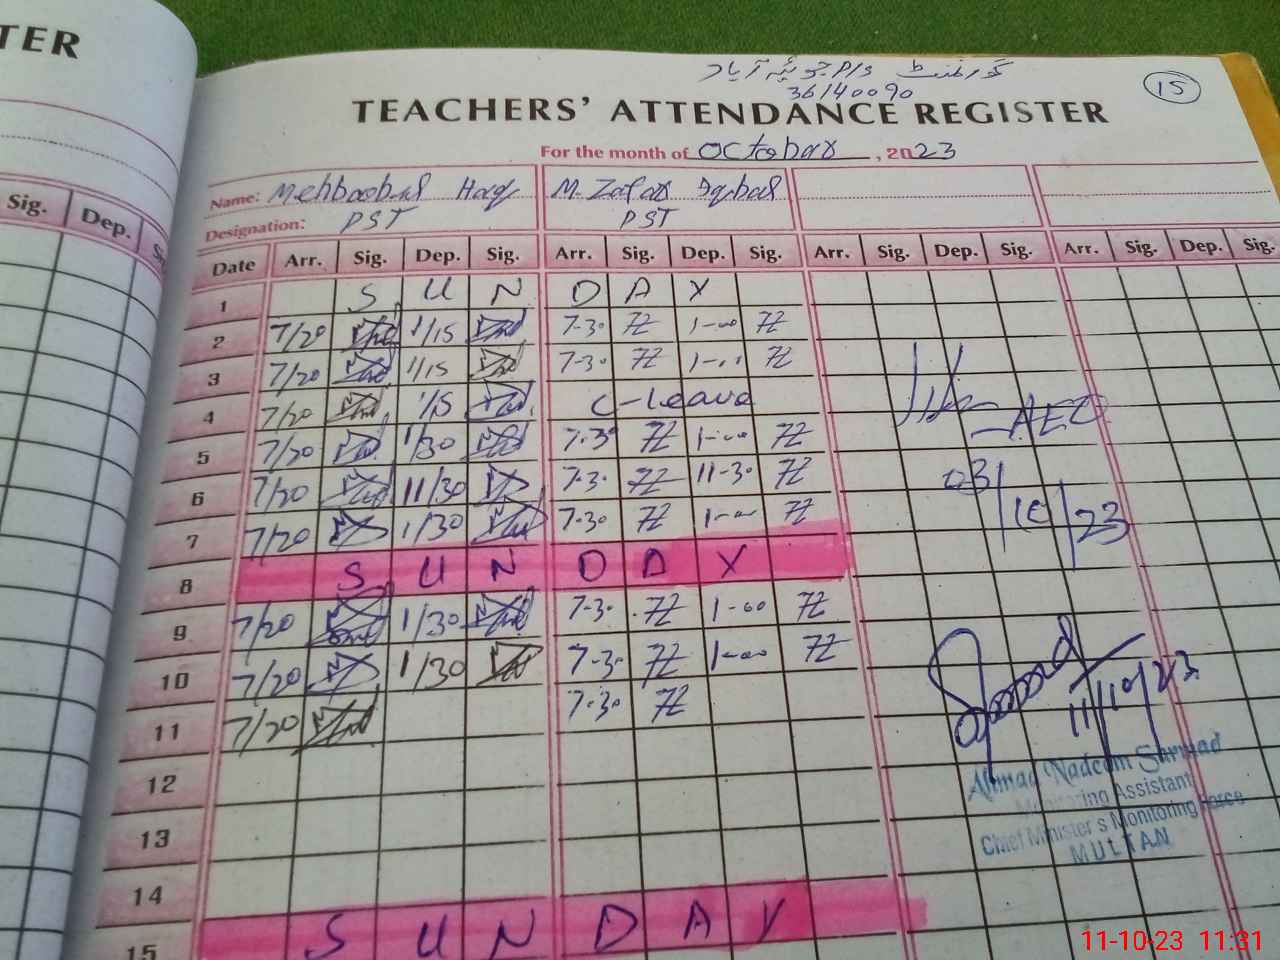 TER
گورنمنٹ P/S جوئیہ آباد
36140090
15
TEACHERS' ATTENDANCE REGISTER
For the month of October, 2023
Name: Mehboobul Haq M. Zafar Iqbal
Designation: PST PST
Sig. Dep. S
Date Arr. Sig. Dep. Sig. Arr. Sig. Dep. Sig. Arr. Sig. Dep. Sig. Arr. Sig. Dep. Sig.
1 S U N D A Y
2 7/20 1/15 7-30 ZZ 1-00 ZZ
3 7/20 1/15 7-30 ZZ 1-00 ZZ
4 7/20 1/15 C-Leave
5 7/20 1/30 7-30 ZZ 1-00 ZZ
6 7/20 11/30 7-30 ZZ 11-30 ZZ
7 7/20 1/30 7-30 ZZ 1-00 ZZ
8 S U N D A Y
9 7/20 1/30 7-30 ZZ 1-00 ZZ
10 7/20 1/30 7-30 ZZ 1-00 ZZ
11 7/20 7-30 ZZ
12
13
14
15 S U N D A Y
AEO
03/10/23
11/10/23
Ahmad Nadeem Sarmad
Monitoring Assistant
Chief Minister's Monitoring Force
MULTAN
11-10-23 11:31